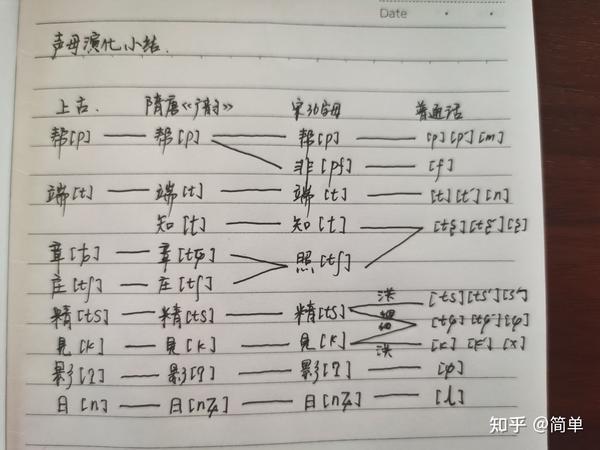 Date
声母演化小结.
上古. 隋唐《广韵》 宋36字母 普通话
帮[p] 帮[p] 帮[p] [p][p'][m]
非[pf] [f]
端[t] 端[t] 端[t] [t][t'][n]
知[ʈ] 知[ʈ] [tʂ][tʂ'][ʂ]
章[ȶ] 章[tɕ] 照[tʃ]
庄[tʃ] 庄[tʃ]
精[ts] 精[ts] 精[ts] 洪 [ts][ts'][s]
细
细 [tɕ][tɕ'][ɕ]
見[k] 見[k] 見[k] 洪 [k][k'][x]
影[ʔ] 影[ʔ] 影[ʔ] [φ]
日[n] 日[nʑ] 日[nʑ] [ɻ]
知乎 @简单